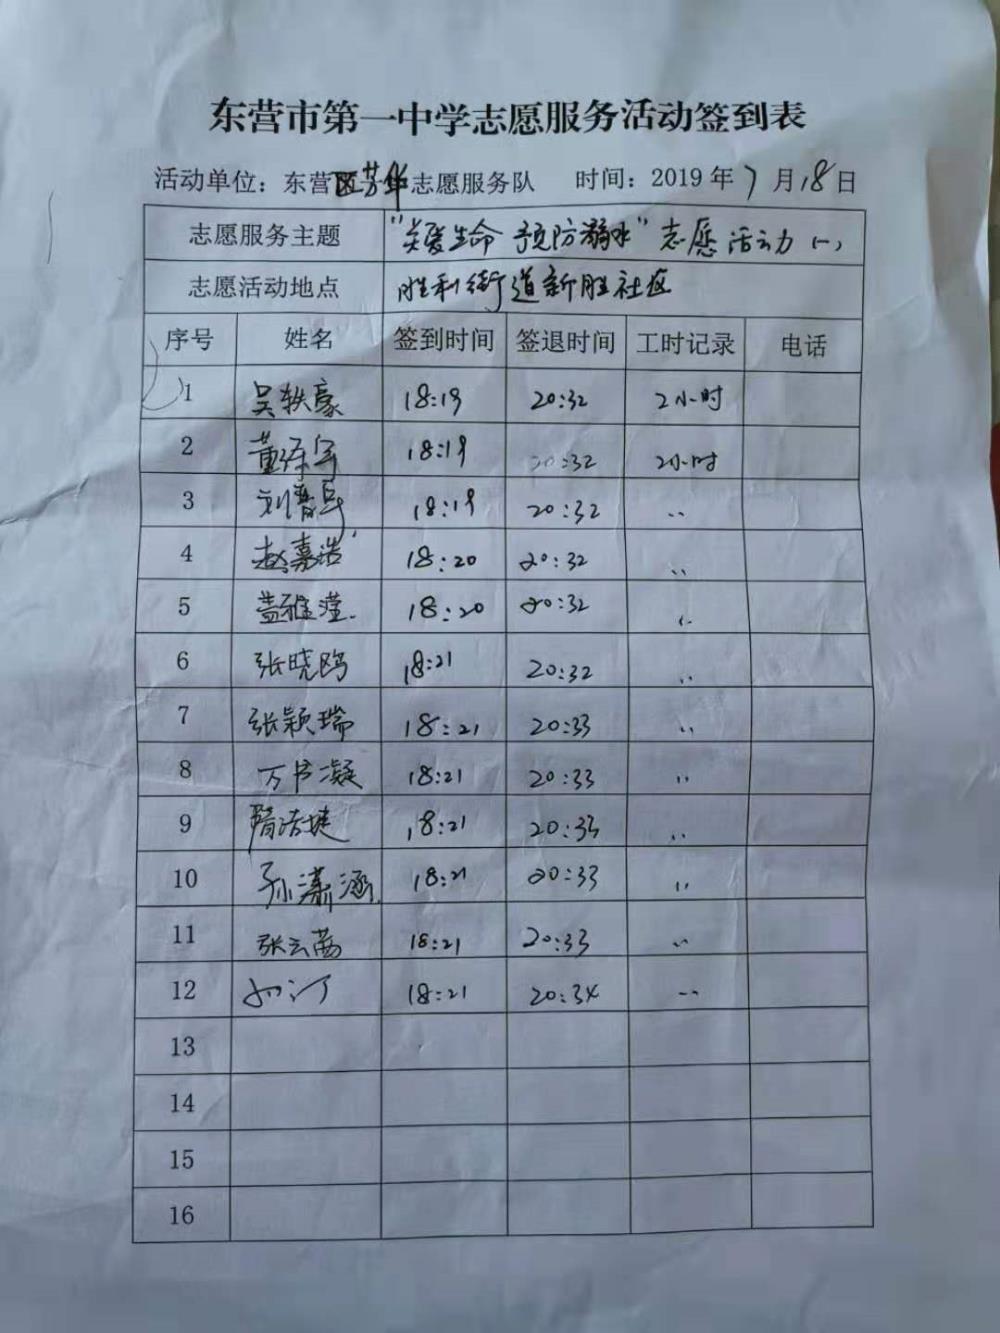 东营市第一中学志愿服务活动签到表
活动单位：东营区芳华志愿服务队 时间：2019年7月18日
志愿服务主题 “关爱生命 预防溺水”志愿活动(一)
志愿活动地点 胜利街道新胜社区
序号 姓名 签到时间 签退时间 工时记录 电话
1 吴轶豪 18:19 20:32 2小时
2 18:19 20:32 2小时
3 18:19 20:32 〃
4 赵嘉浩 18:20 20:32 〃
5 盖雅滢 18:20 20:32 〃
6 张晓鸥 18:21 20:32 〃
7 张颖瑞 18:21 20:33 〃
8 万书凝 18:21 20:33 〃
9 隋洁婕 18:21 20:33 〃
10 孙潇涵 18:21 20:33 〃
11 张云 18:21 20:33 〃
12 18:21 20:34 〃
13
14
15
16